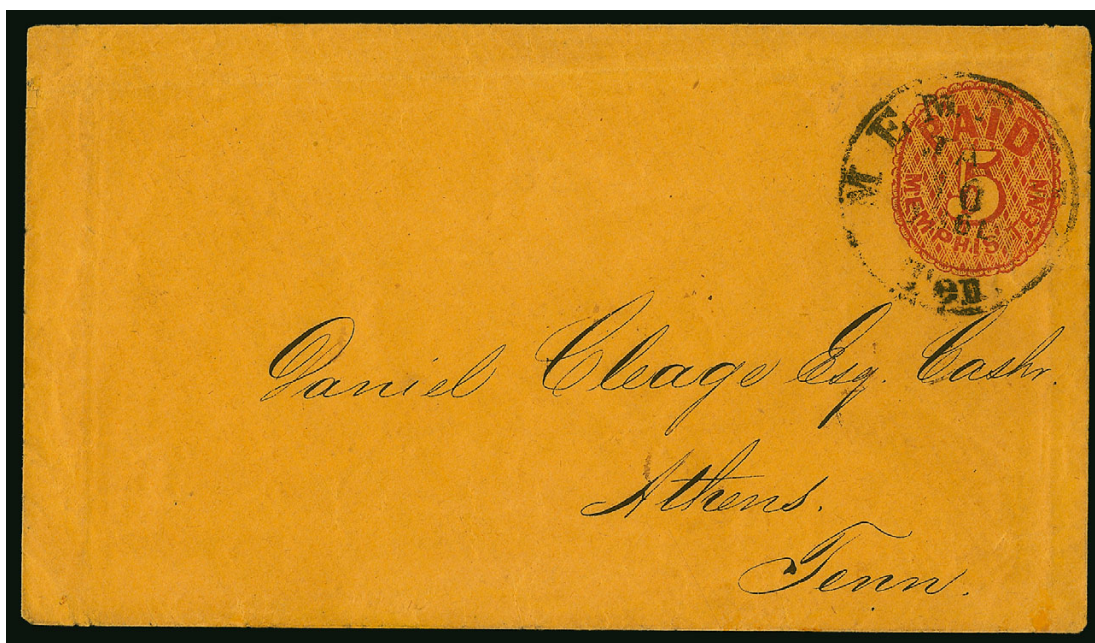 PAID
5
MEMPHIS, TENN
Ten
Daniel Cleage Esq. Cashr.
Athens.
Tenn.